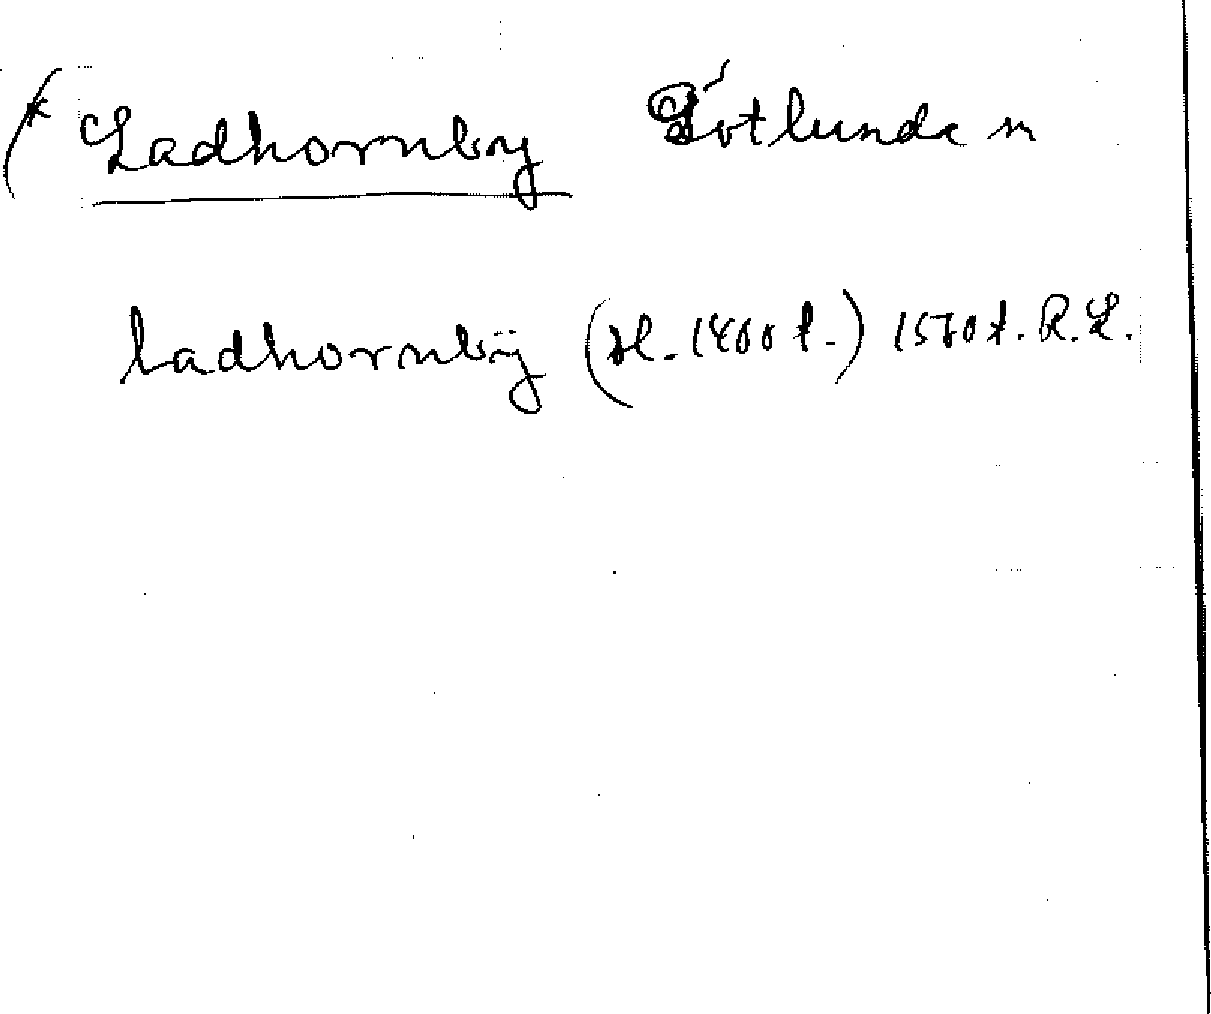 (* Ladhornby Götlunda sn
ladhornbÿ (sl. 1400 t.) 1570 t. R.L.